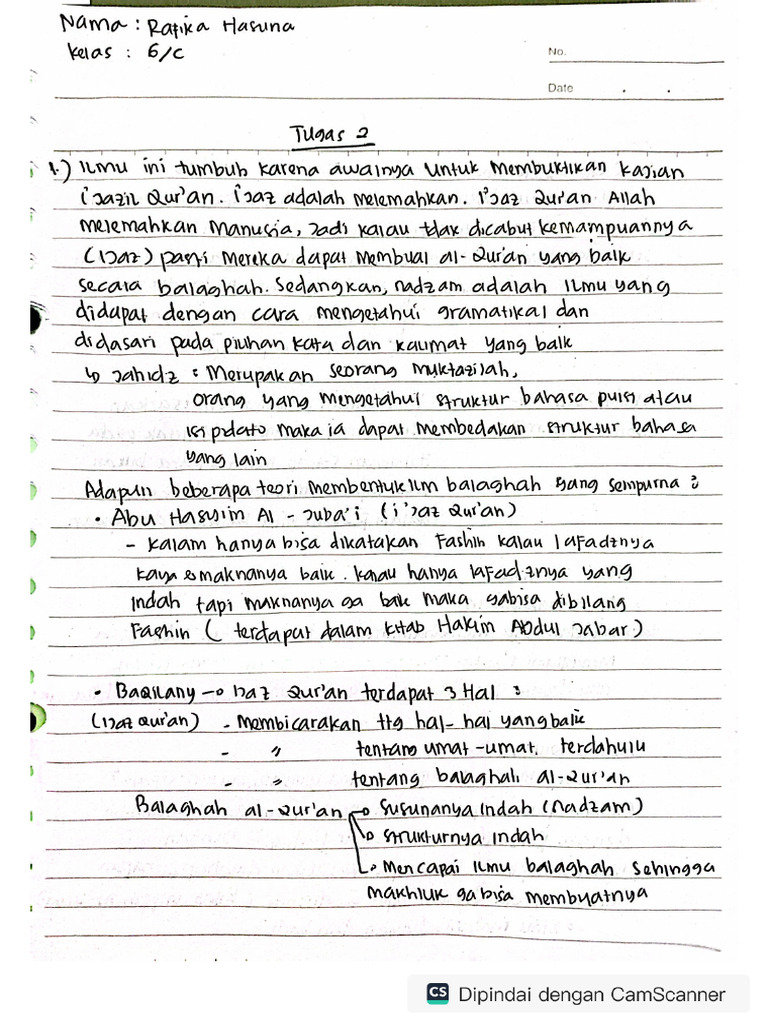 Nama : Rafika Hasuna
Kelas : 6/C
No.
Date . .
Tugas 2
1.) Ilmu ini tumbuh karena awalnya untuk membuktikan kajian
i'jazil Qur'an. i'jaz adalah melemahkan. i'jaz Qur'an Allah
melemahkan manusia, Jadi kalau tdak dicabut kemampuannya
(Ijaz) pasti mereka dapat membuat al-Qur'an yang baik
secara balaghah. Sedangkan, nadzam adalah ilmu yang
didapat dengan cara mengetahui gramatikal dan
didasari pada pilihan kata dan kalimat yang baik
↳ Jahidz : Merupakan seorang muktazilah,
orang yang mengetahui struktur bahasa puisi atau
isi pidato maka ia dapat membedakan struktur bahasa
yang lain
Adapun beberapa teori membentuk ilm balaghah yang sempurna :
• Abu Hasyim Al - Juba'i (i'jaz Qur'an)
- Kalam hanya bisa dikatakan Fashih kalau lafadznya
maknanya baik. kalau hanya lafadznya yang
indah tapi maknanya ga baik maka gabisa dibilang
Fashih ( terdapat dalam kitab Hakim Abdul Jabar)
• Baqilany → Ijaz Qur'an terdapat 3 Hal :
(Ijaz Qur'an) - Membicarakan ttg hal-hal yang baik
- " tentang umat-umat terdahulu
- " tentang balaghah al-Qur'an
Balaghah al-Qur'an → Susunanya Indah (Nadzam)
→ Strukturnya Indah
→ Mencapai ilmu balaghah sehingga
makhluk ga bisa membuatnya
CS Dipindai dengan CamScanner